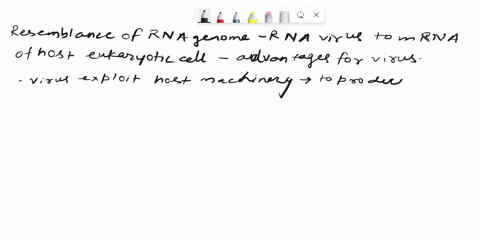 Resemblance of RNA genome - RNA virus to mRNA
of host eukaryotic cell - advantages for virus.
. virus exploit host machinery → to produc